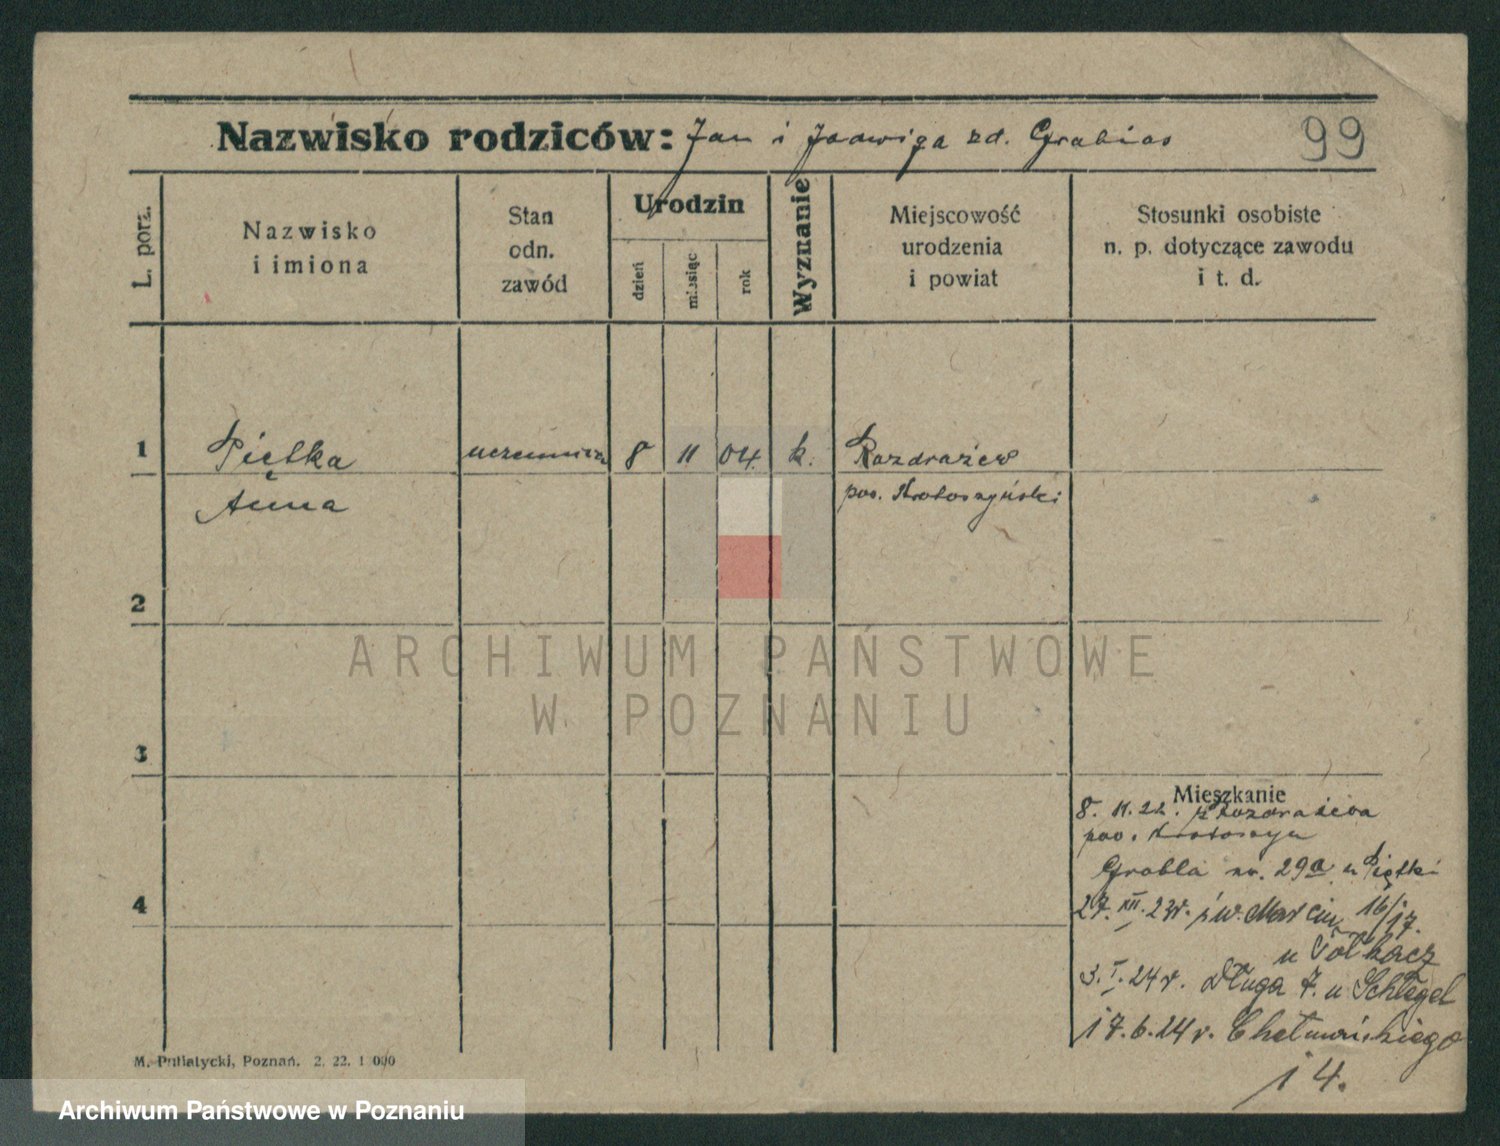 Nazwisko rodziców: Jan i Jadwiga zd. Grabias
99
L. porz.
Nazwisko
i imiona
Stan
odn.
zawód
Urodzin
dzień
miesiąc
rok
Wyznanie
Miejscowość
urodzenia
i powiat
Stosunki osobiste
n. p. dotyczące zawodu
i t. d.
1
Piętka
uczennica
8
11
04.
k.
Rozdrażew
Anna
pow. Krotoszyński
2
ARCHIWUM PAŃSTWOWE
W POZNANIU
3
Mieszkanie
8. 11. 22. z Rozdrażewa
pow. Krotoszyn
Grobla nr. 29a u Piętki
4
27. XII. 23r. św. Marcin 16/17.
u
3. I. 24r. Długa 7. u Schlegel
17. 6. 24 r. Chełmońskiego
14.
M. Putiatycki, Poznań. 2. 22. 1 000
Archiwum Państwowe w Poznaniu